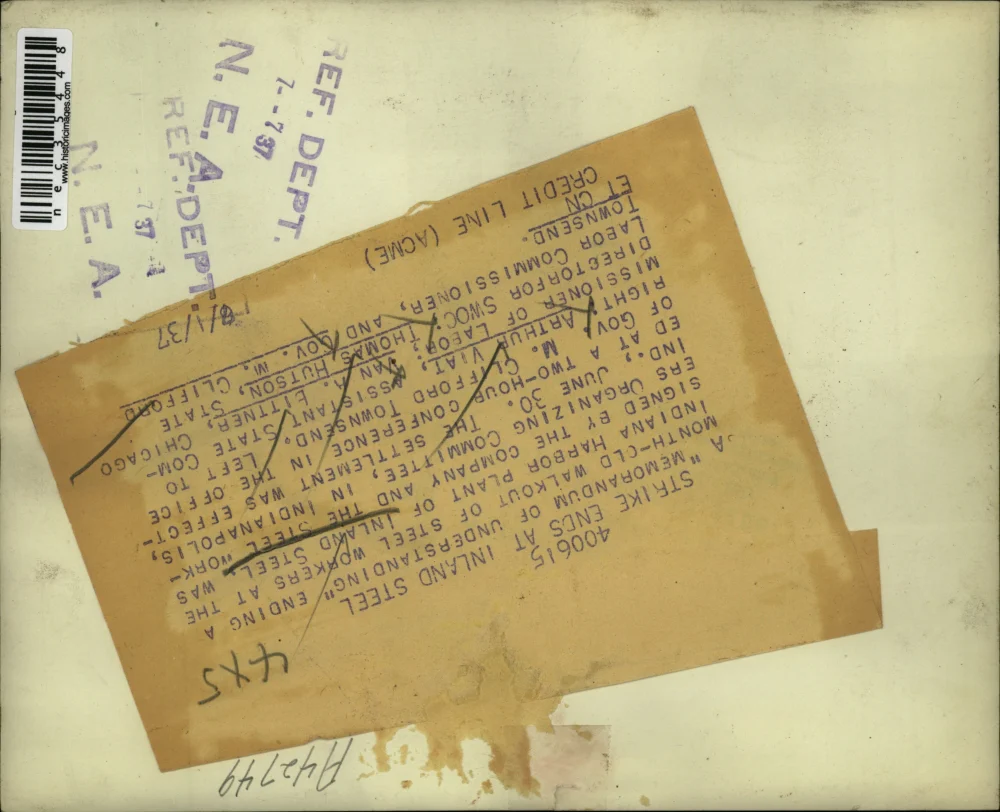 400615
STRIKE ENDS AT INLAND STEEL
A "MEMORANDUM OF UNDERSTANDING" ENDING A
MONTH-OLD WALKOUT OF STEEL WORKERS AT THE
INDIANA HARBOR PLANT OF INLAND STEEL, WAS
SIGNED BY THE COMPANY AND THE STEEL WORK-
ERS ORGANIZING COMMITTEE, IN INDIANAPOLIS,
IND., JUNE 30. THE SETTLEMENT WAS EFFECT-
ED AT A TWO-HOUR CONFERENCE IN THE OFFICE
OF GOV. M. CLIFFORD TOWNSEND. LEFT TO
RIGHT ARTHUR VIAT, ASSISTANT STATE COM-
MISSIONER OF LABOR, VAN A. BITTNER, CHICAGO
DIRECTORFOR SWOC, THOMAS HUTSON, STATE
LABOR COMMISSIONER, AND GOV. M. CLIFFORD
TOWNSEND.
ET CN
CREDIT LINE (ACME)
4x5
A42749
REF. DEPT.
N. E. A.
REF. DEPT.
N. E. A.
nec35448
www.historicimages.com